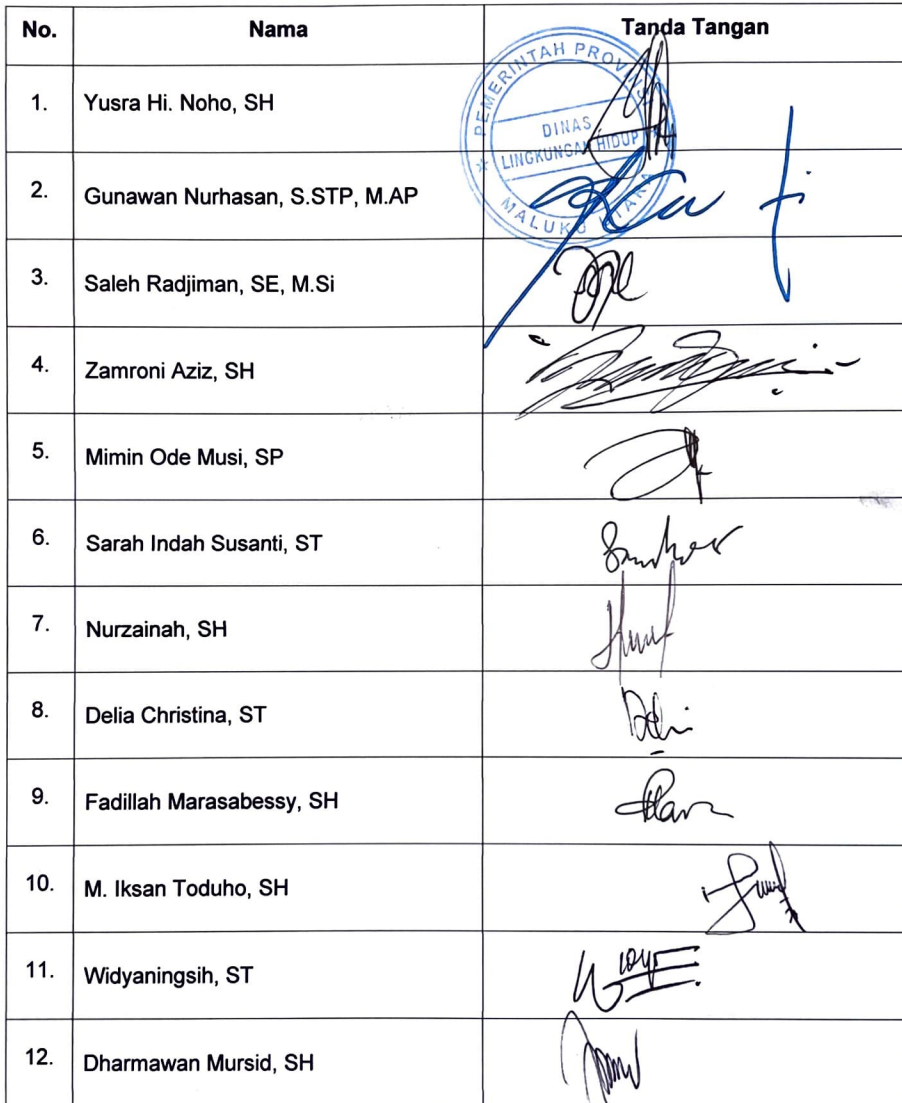 No. Nama Tanda Tangan
1. Yusra Hi. Noho, SH
PEMERINTAH PROVINSI
DINAS
LINGKUNGAN HIDUP
MALUKU UTARA
2. Gunawan Nurhasan, S.STP, M.AP
3. Saleh Radjiman, SE, M.Si
4. Zamroni Aziz, SH
5. Mimin Ode Musi, SP
6. Sarah Indah Susanti, ST
7. Nurzainah, SH
8. Delia Christina, ST
9. Fadillah Marasabessy, SH
10. M. Iksan Toduho, SH
11. Widyaningsih, ST
12. Dharmawan Mursid, SH